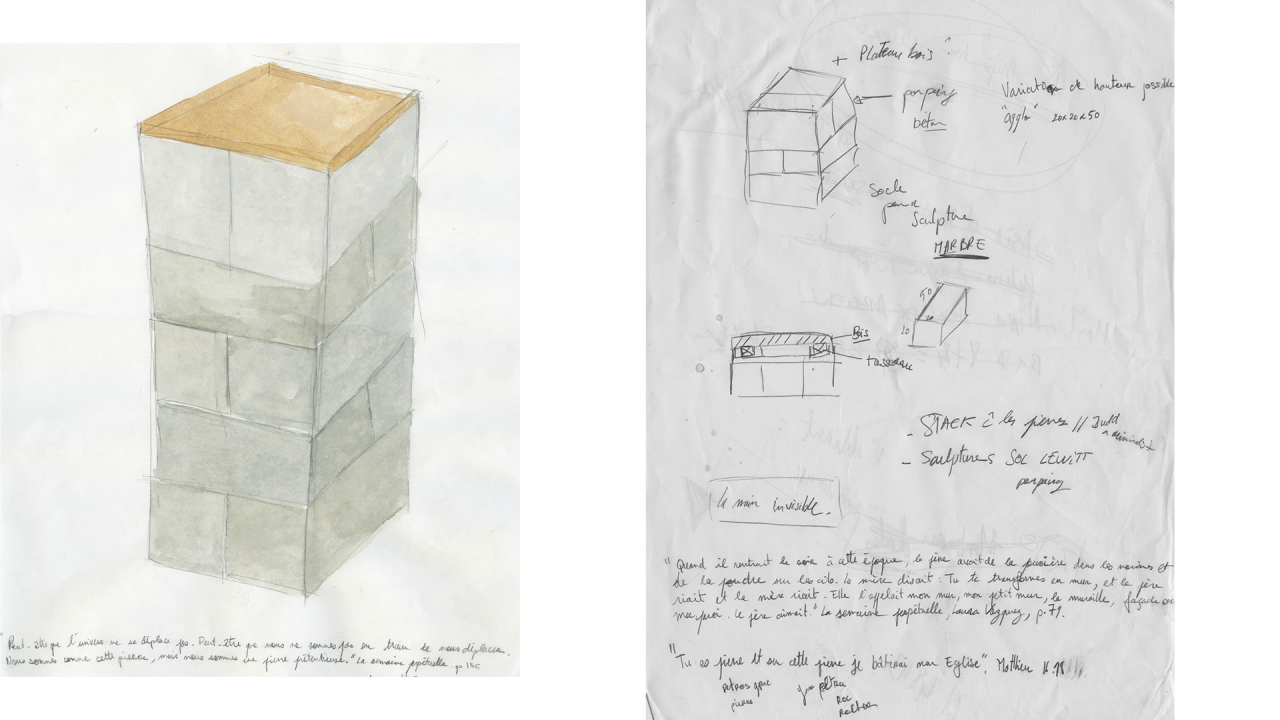 "Peut-être que l'univers ne se déplace pas. Peut-être que nous ne sommes pas en train de nous déplacer.
Nous sommes comme cette pierre, mais nous sommes une pierre prétentieuse." La semaine perpétuelle. p
+ Plateau bois
parpaing
béton
Variation de hauteur possible
"agglo" 20x20x50
Socle
pour
Sculpture
MARBRE
50
20
20
Bois
tasseau
- STACK les pierres // Judd
- Sculptures SOL LEWITT
parpaing
La main invisible.
"Quand il rentrait le soir à cette époque, le père avait de la poussière dans les narines et
de la poudre sur les cils. La mère disait : Tu te transformes en mur, et le père
riait et la mère riait. Elle l'appelait mon mur, mon petit mur, la muraille, façade ou
le père aimait." La semaine perpétuelle, Laura Vazquez, p.71.
"Tu es pierre et sur cette pierre je bâtirai mon Eglise", Matthieu 16.18
pierre